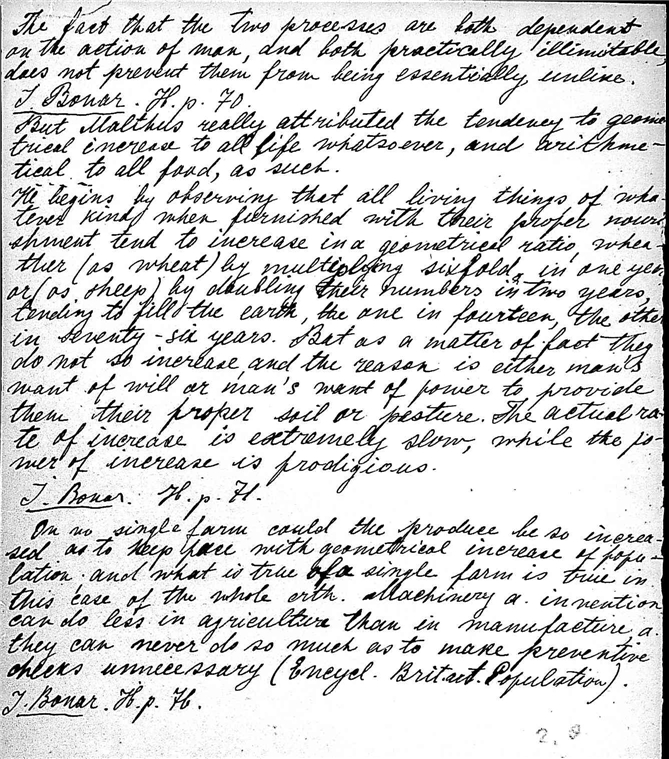 The fact that the two processes are both dependent
on the action of man, and both practically illimitable,
does not prevent them from being essentially unlike.
J. Bonar. H. p. 70.
But Malthus really attributed the tendency to geome
trical increase to all life whatsoever, and arithme-
tical to all food, as such.
He begins by observing that all living things of wha
tever kind when furnished with their proper nouri
shment tend to increase in a geometrical ratio, whe
ther (as wheat) by multiplying sixfold, in one year
or (as sheep) by doubling their numbers in two years,
tending to fill the earth, the one in fourteen, the other
in seventy-six years. But as a matter of fact they
do not so increase and the reason is either man's
want of will or man's want of power to provide
them their proper soil or pasture. The actual ra-
te of increase is extremely slow, while the po-
wer of increase is prodigious.
J. Bonar. H. p. 71.
On no single farm could the produce be so increa-
sed as to keep pace with geometrical increase of popu-
lation: and what is true of a single farm is true in
this case of the whole erth. Machinery a. invention
can do less in agriculture than in manufacture, a.
they can never do so much as to make preventive
checks unnecessary (Encycl. Britact. Population).
J. Bonar. H. p.
2.